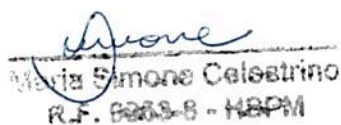 Simone
Maria Simone Celestrino
R.F. 6963-8 - HBPM